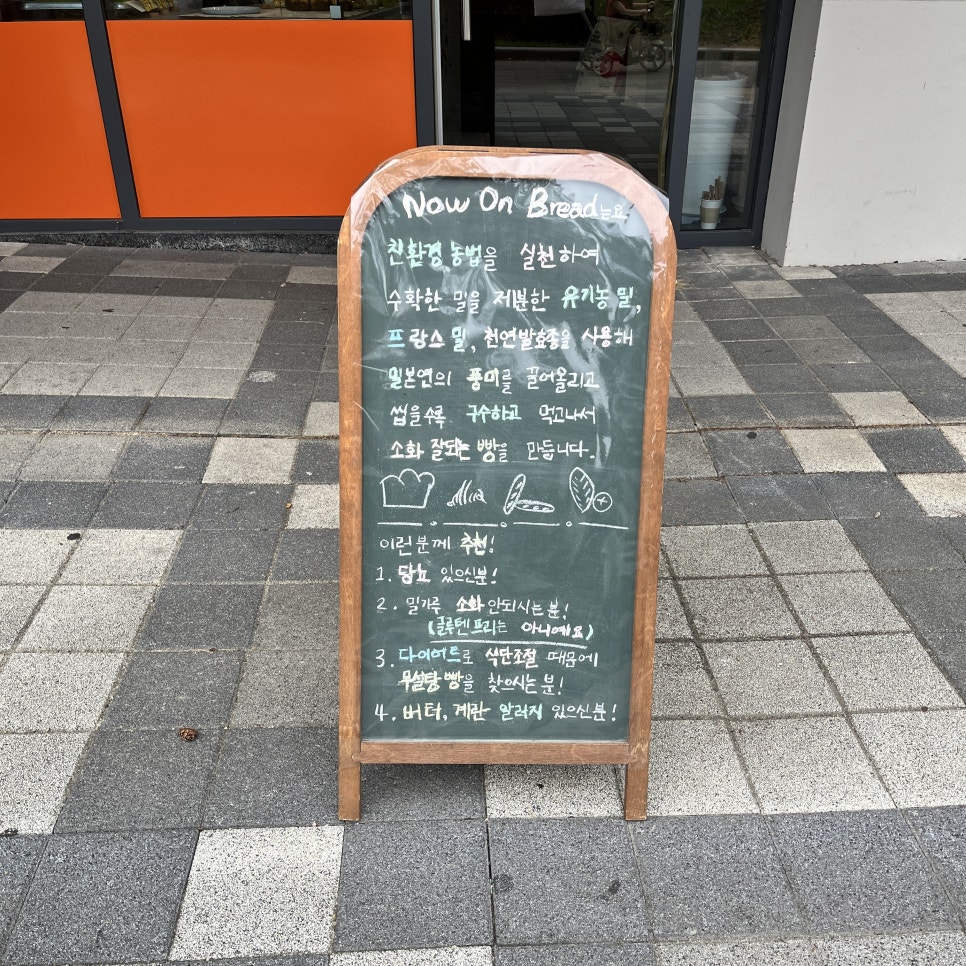 Now On Bread는요
친환경 농법을 실천하여
수확한 밀을 제분한 유기농 밀,
프랑스 밀, 천연발효종을 사용해
밀본연의 풍미를 끌어올리고
씹을수록 구수하고 먹고나서
소화 잘되는 빵을 만듭니다.
이런분께 추천!
1. 당뇨 있으신분!
2. 밀가루 소화 안되시는 분!
(글루텐프리는 아니예요)
3. 다이어트로 식단조절 때문에
무설탕 빵을 찾으시는 분!
4. 버터, 계란 알러지 있으신분!